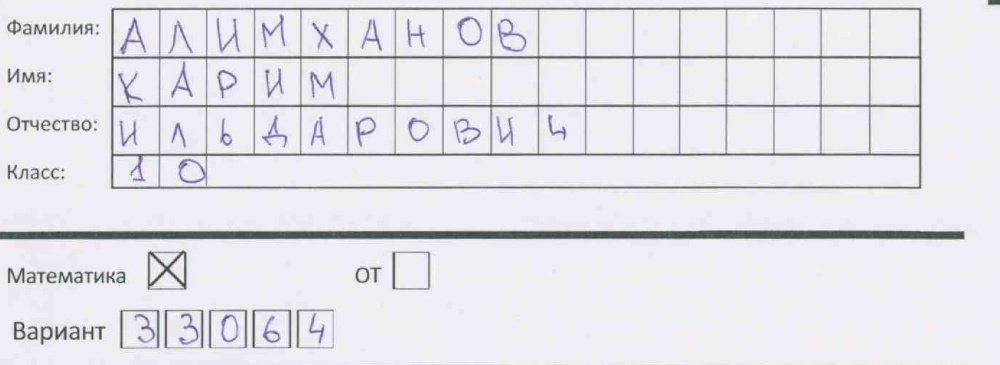 Фамилия: АЛИМХАНОВ
Имя: КАРИМ
Отчество: ИЛЬДАРОВИЧ
Класс: 10
Математика ☒ ОТ ☐
Вариант 33064